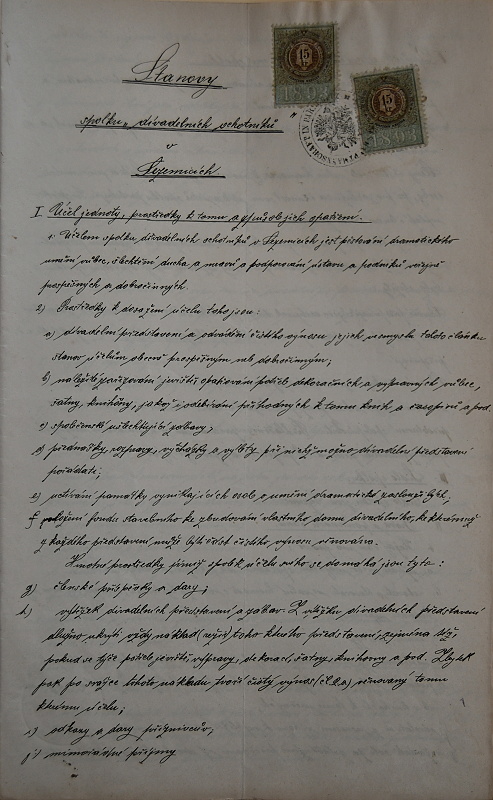 Stanovy
spolku „divadelních ochotníků"
v
Sezemicích.
I Účel jednoty, prostředky k tomu a způsob jich opatření.
1. Účelem spolku divadelních ochotníků v Sezemicích jest pěstování dramatického
umění vůbec, šlechtění ducha a mravů a podporování ústavů a podniků veřejně
prospěšných a dobročinných.
2) Prostředky k dosažení účelu toho jsou:
a) divadelní představení a odvádění čistého výnosu jejich ve smyslu tohoto článku
stanov účelům obecně prospěšným neb dobročinným;
b) náležité zařizování jeviště, opatřování potřeb dekoračních a výpravných vůbec,
šatny, knihovny, jakož i odebírání příhodných k tomu knih a časopisů a pod.
c) společenské ušlechťující zábavy;
d) přednášky, rozpravy, vycházky a výlety, při nichž možno divadelní představení
pořádati;
e) uctívání památky vynikajících osob o umění dramatické zasloužilých;
f založení fondu stavebního ke zbudování vlastního domu divadelního, ke kterémuž
z každého představení musí býti část čistého výnosu věnována.
Hmotné prostředky jimiž spolek účelu svého se domáhá jsou tyto:
g) členské příspěvky a dary;
h) výtěžek divadelních představení a zábav. Z výtěžku divadelních představení
dlužno uhraditi vždy náklad (režii) toho kterého představení, zejména též,
pokud se týče potřeb jeviště, výpravy, dekorací, šatny, knihovny a pod. Zbytek
pak po srážce tohoto nákladu tvoří čistý výnos (čl. 2. a) věnovaný tomu
kterému účelu;
i) odkazy a dary příznivcův;
j) mimořádné příjmy
15
1893
15
1893